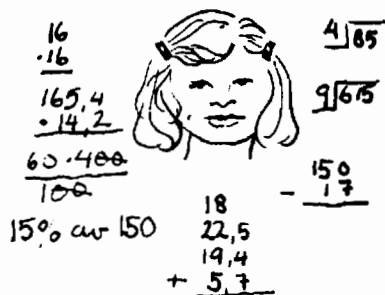 16
·16
165,4
·14,2
60·400
100
15% av 150
18
22,5
19,4
+ 5,7
4 85
9 615
150
- 17